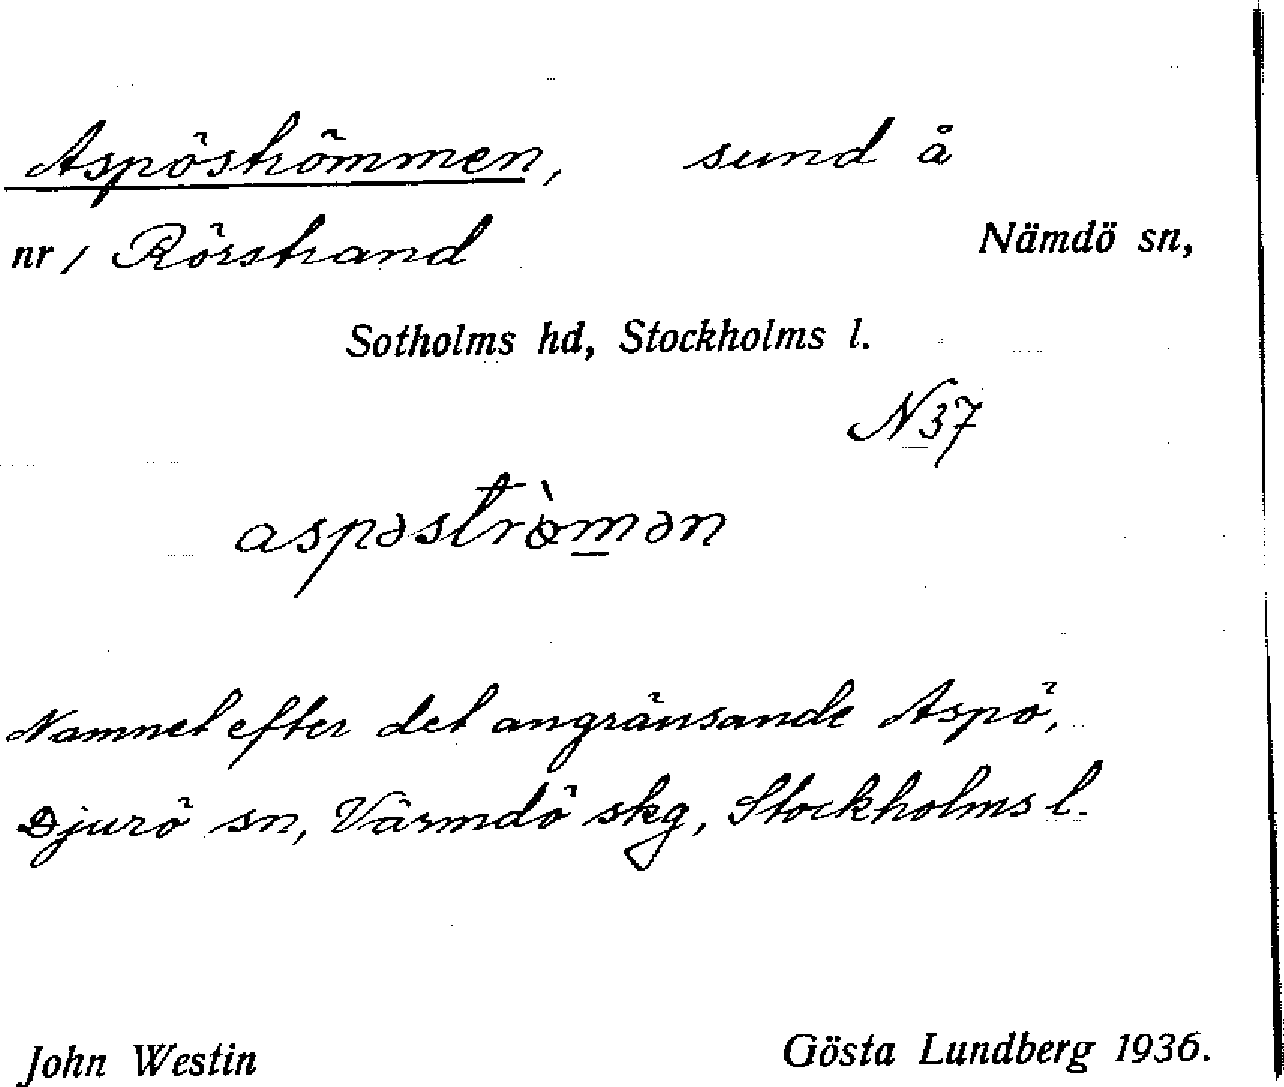 Aspöströmmen, sund å
nr 1 Rörstrand Nämdö sn,
Sotholms hd, Stockholms l.
N37
aspəstrø̀mən
Namnet efter det angränsande Aspö,
Djurö sn, Värmdö skg, Stockholms l.
John Westin Gösta Lundberg 1936.